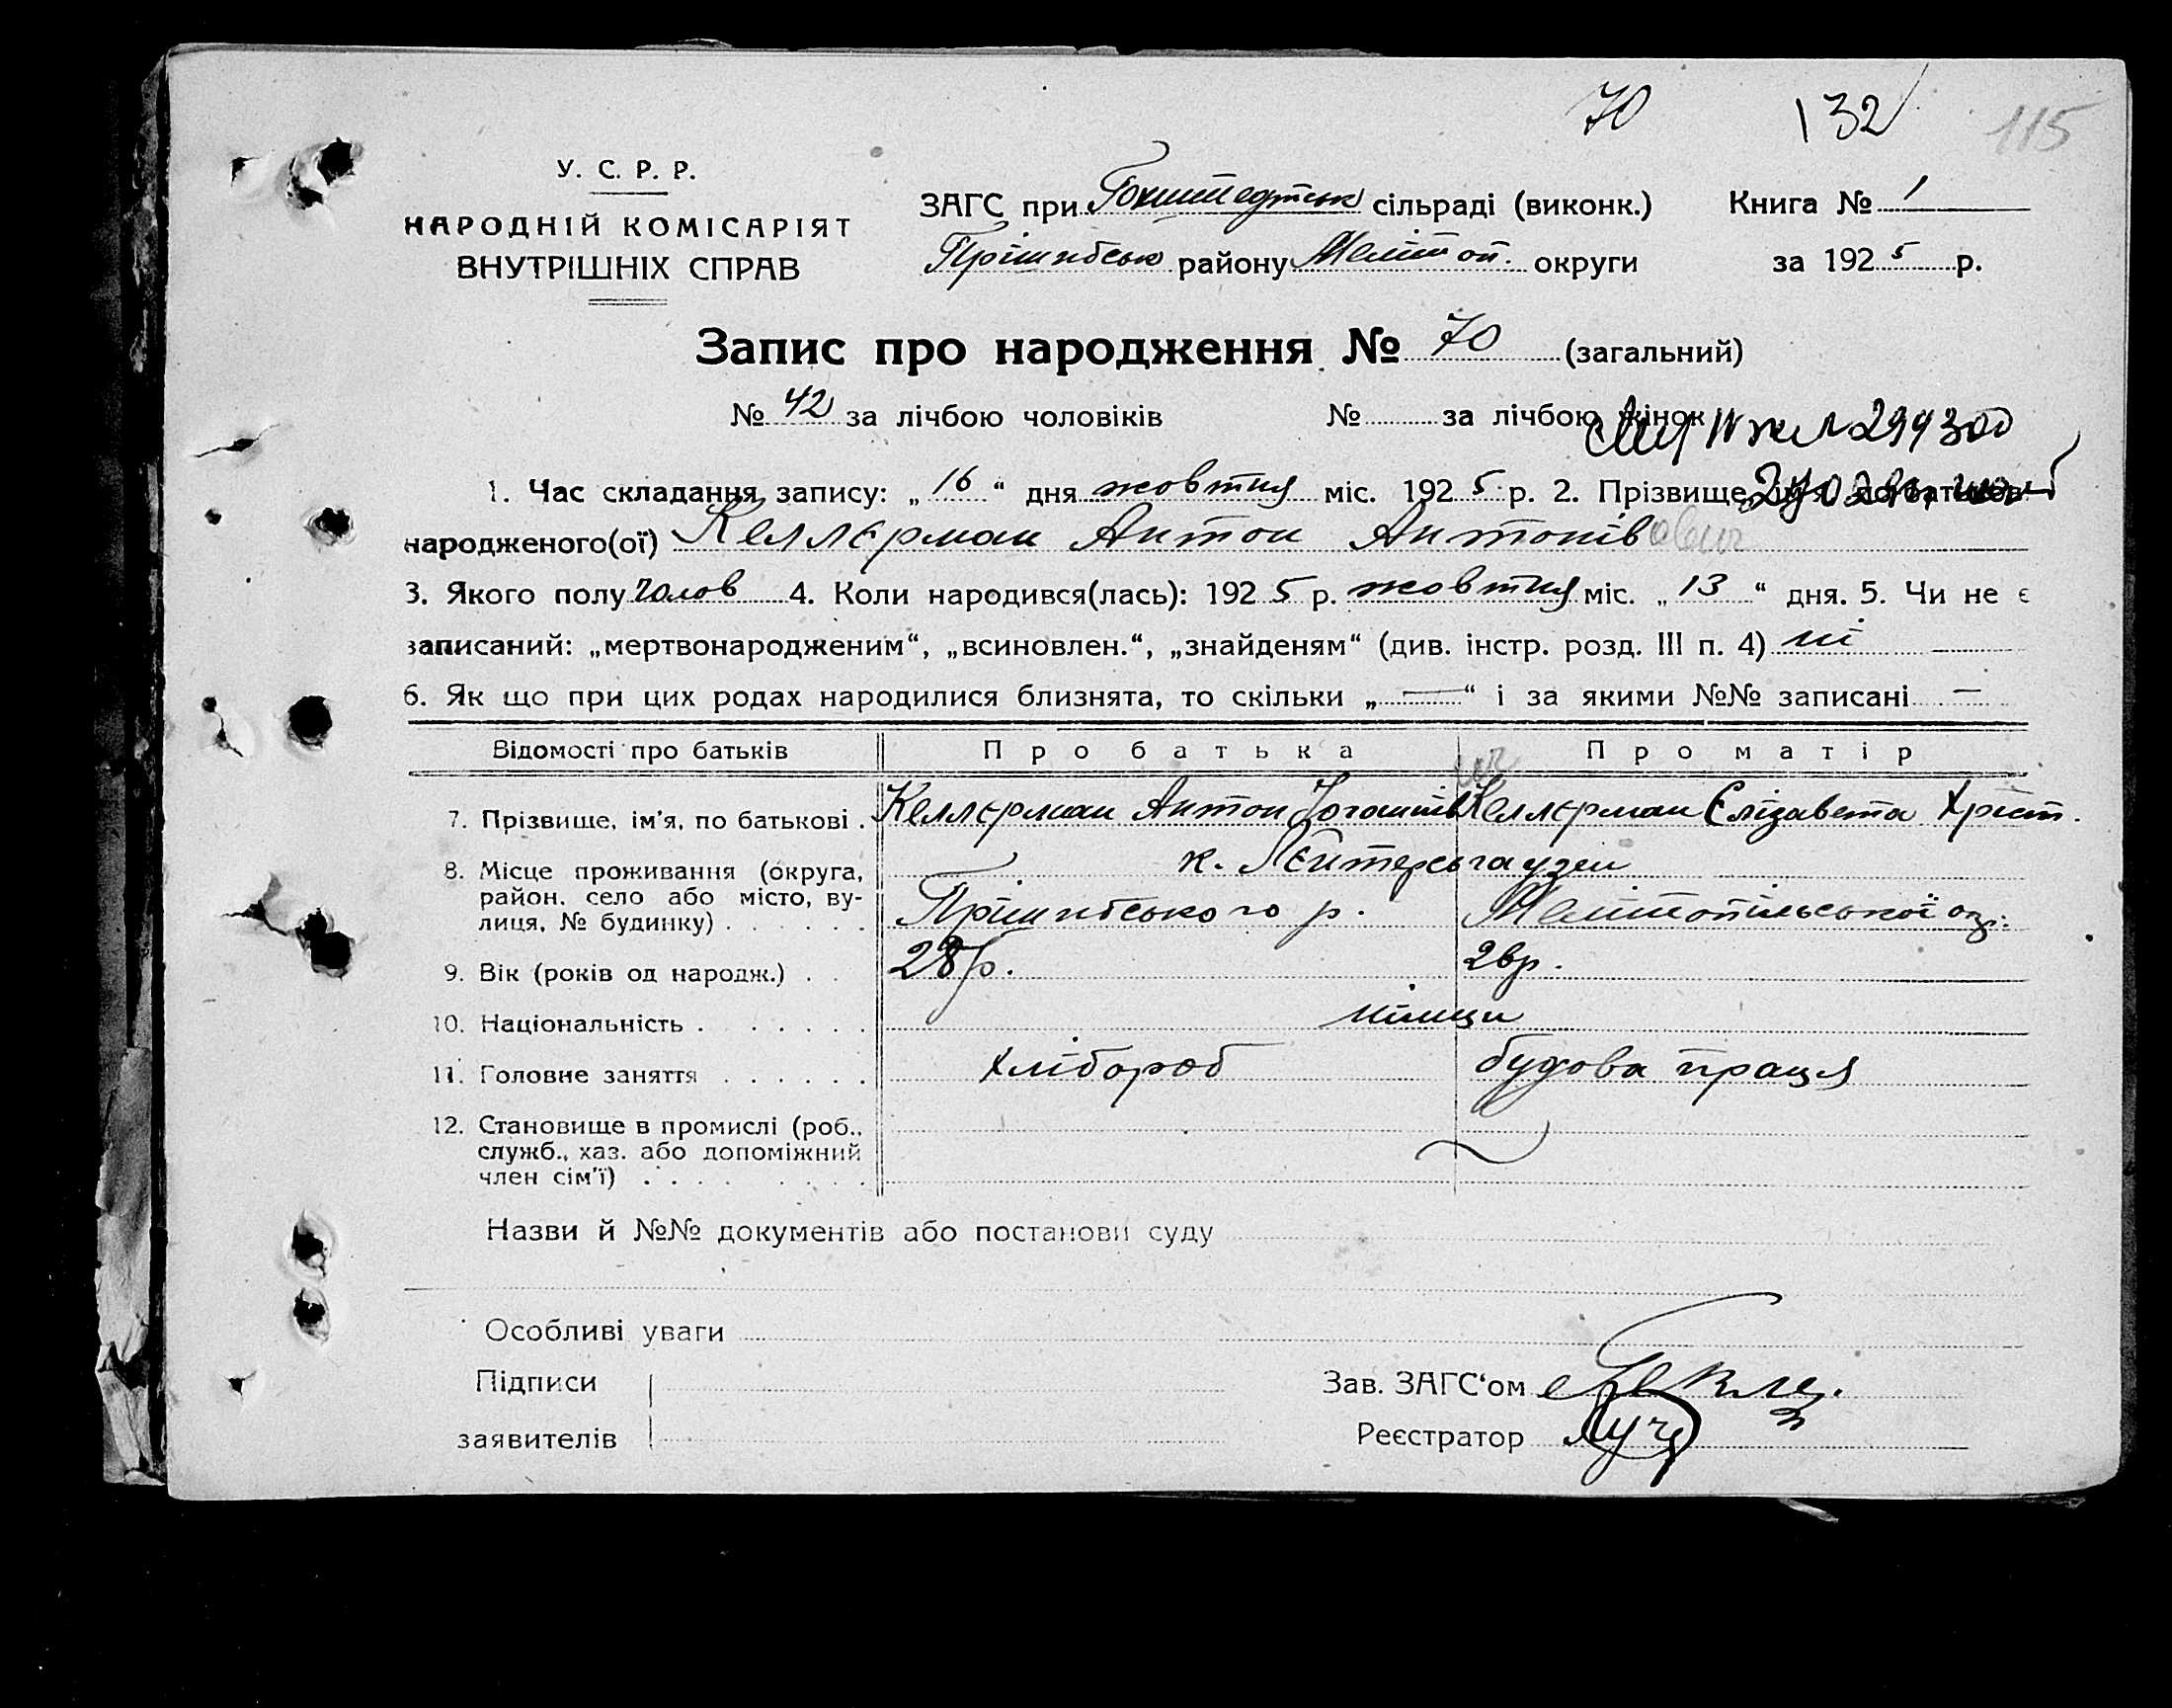 70 132 115
У. С. Р. Р.
НАРОДНІЙ КОМІСАРІЯТ
ВНУТРІШНІХ СПРАВ
ЗАГС при Гохштедтськ сільраді (виконк.) Книга № 1
Прішибськ району Меліtоп. округи за 1925 р.
Запис про народження № 70 (загальний)
№ 42 за лічбою чоловіків № за лічбою жінок
1. Час складання запису: „16“ дня жовтня міс. 1925 р. 2. Прізвище, ім'я, по батьков.
народженого(ої) Келлєрман Антон Антонів
3. Якого полу чолов 4. Коли народився(лась): 1925 р. жовтня міс. „13“ дня. 5. Чи не є
записаний: „мертвонародженим“, „всиновлен.“, „знайденям“ (див. інстр. розд. III п. 4) ні
6. Як що при цих родах народилися близнята, то скільки „—“ і за якими №№ записані —
Відомості про батьків Про батька Про матір
7. Прізвище, ім'я, по батькові . Келлєрман Антон Келлєрман Єлізавета Хріст.
8. Місце проживання (округа, район, село або місто, вулиця, № будинку) . . . . . . к. Пєйтерсьгаузен
Прішибського р. Мелітопільської окр.
9. Вік (років од народж.) . . 28 р. 26 р.
10. Національність . . . . . . німци
11. Головне заняття . . . . . . хлібороб будова праця
12. Становище в промислі (роб., служб., хаз. або допоміжний член сім'ї) . . . .
Назви й №№ документів або постанови суду
Особливі уваги
Підписи
заявителів
Зав. ЗАГС‘ом
Реєстратор